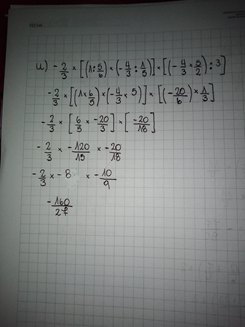 u) - 2/3 × [(1 : 5/6) × (- 4/3 : 1/5)] × [(- 4/3 × 5/2) : 3]
- 2/3 × [(1 × 6/5) × (- 4/3 × 5)] × [(- 20/6) × 1/3]
- 2/3 × [6/5 × - 20/3] × [- 20/18]
- 2/3 × - 120/15 × - 20/18
- 2/3 × - 8 × - 10/9
- 160/27